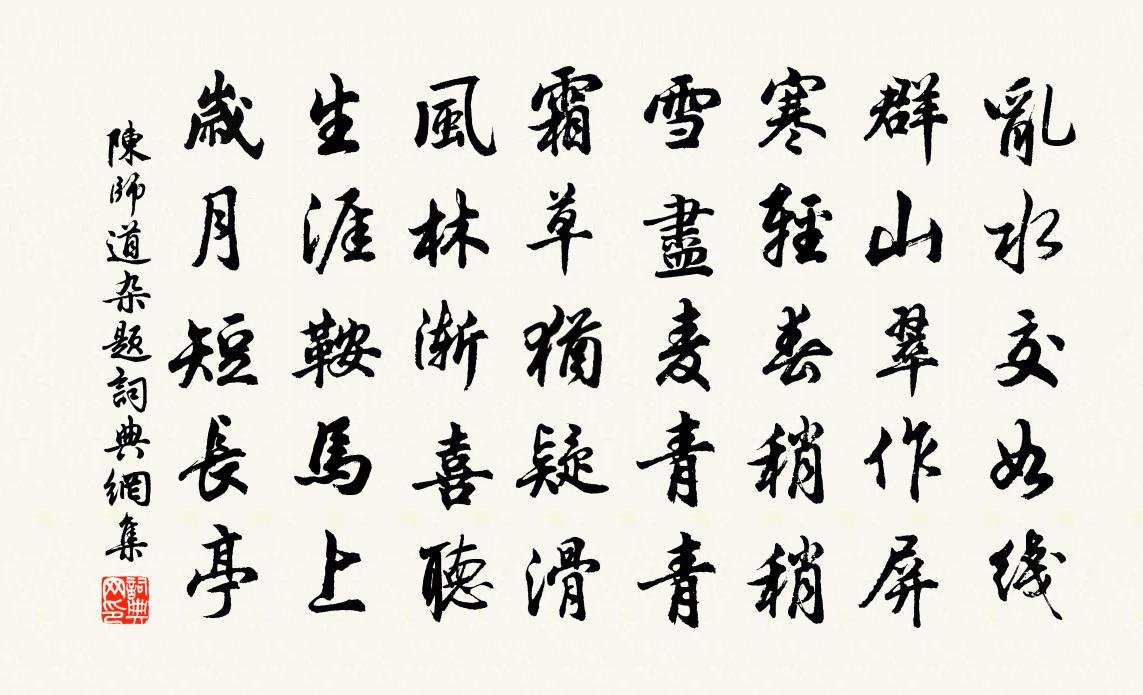 亂水交如线
群山翠作屏
寒輕春稍稍
雪盡麦青青
霜草猶疑滑
風林渐喜聽
生涯鞍馬上
歲月短長亭
陳師道杂题詞典網集
詞典网印